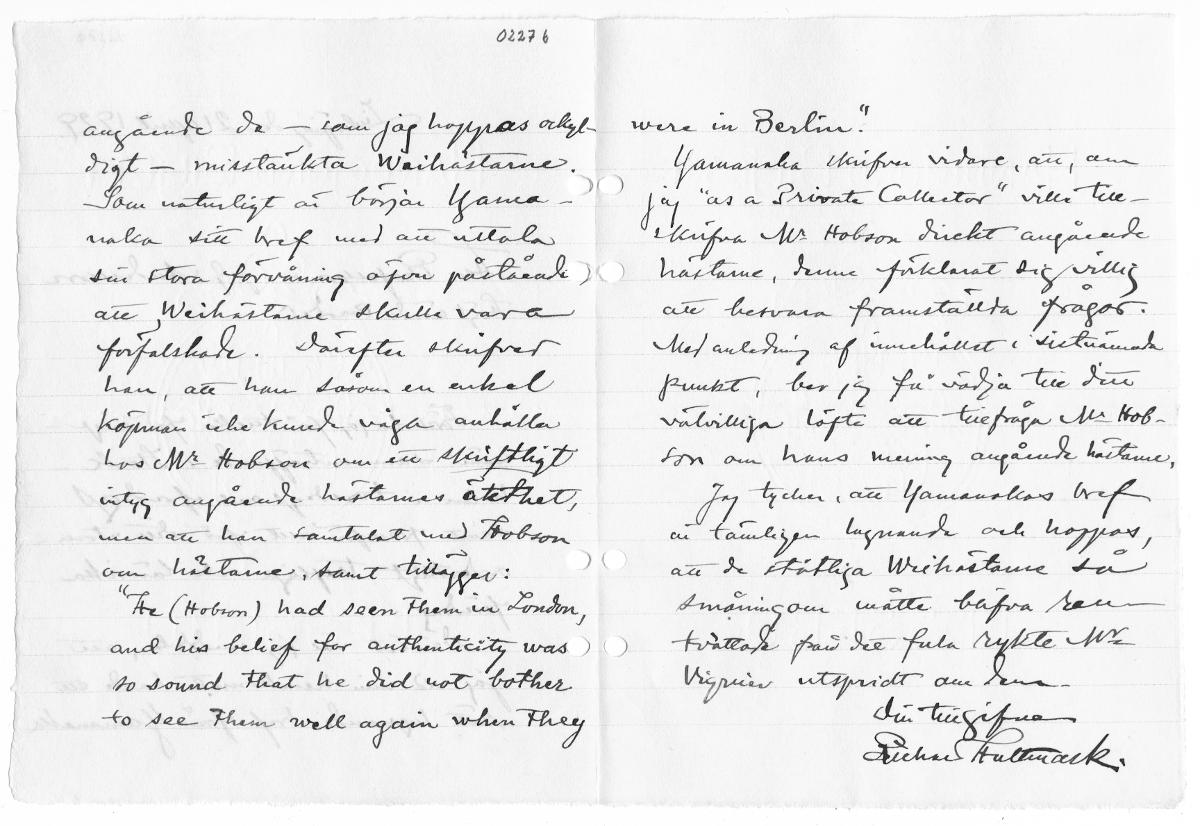 02276
angående de – som jag hoppas oskyl-
digt – misstänkta Weihästarne.
Som naturligt är börjar Yama-
naka sitt bref med att uttala
sin stora förvåning öfver påståendet,
att Weihästarne skulle vara
förfalskade. Därefter skrifver
han, att han såsom en enkel
köpman icke kunde våga anhålla
hos Mr Hobson om ett skriftligt
intyg angående hästarnes äkthet,
men att han samtalat med Hobson
om hästarne, samt tillägger:
"He (Hobson) had seen them in London,
and his belief for authenticity was
so sound that he did not bother
to see them well again when they
were in Berlin."
Yamanaka skrifver vidare, att, om
jag "as a Private Collector" ville till-
skrifva Mr Hobson direkt angående
hästarne, denne förklarat sig villig
att besvara framställda frågor.
Med anledning af innehållet i sistnämnda
punkt, ber jag få vädja till ditt
välvilliga löfte att tillfråga Mr Hob-
son om hans mening angående hästarne.
Jag tycker, att Yamanakas bref
är tämligen lugnande och hoppas,
att de ståtliga Weihästarne så
småningom måtte blifva ren-
tvättade från det fula rykte Mr
Vignier utspridt om dem.
Din tillgifne
Richard Hultmark.